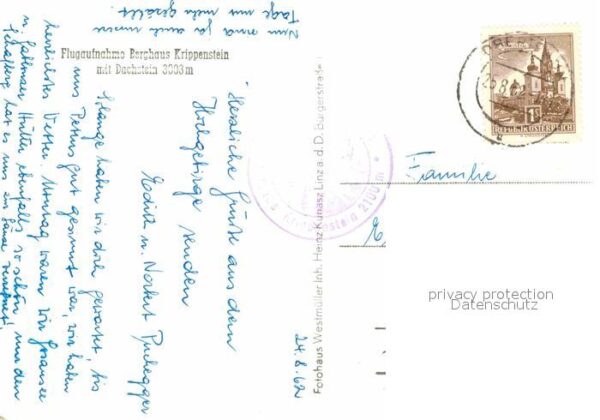 Flugaufnahme Berghaus Krippenstein
mit Dachstein 3003 m
24.8.62
Herzliche Grüße aus dem
Hochgebirge senden
Edith u. Norbert
Solange haben wir doch gewartet, bis
uns Petrus gut gesinnt war, wir haben
herrliches Wetter. Montag waren wir
u. Hütte ebenfalls so schön, nur den
Schafberg hat es uns ein bisserl verregnet!
Nun sind ja auch unsere
Tage nur mehr gezählt.
Fotohaus Westmüller Inh. Heinz Kunasz Linz a. d. D. Bürgerstraße
Krippenstein 2100 m
1S
Republik Österreich
Familie
privacy protection
Datenschutz